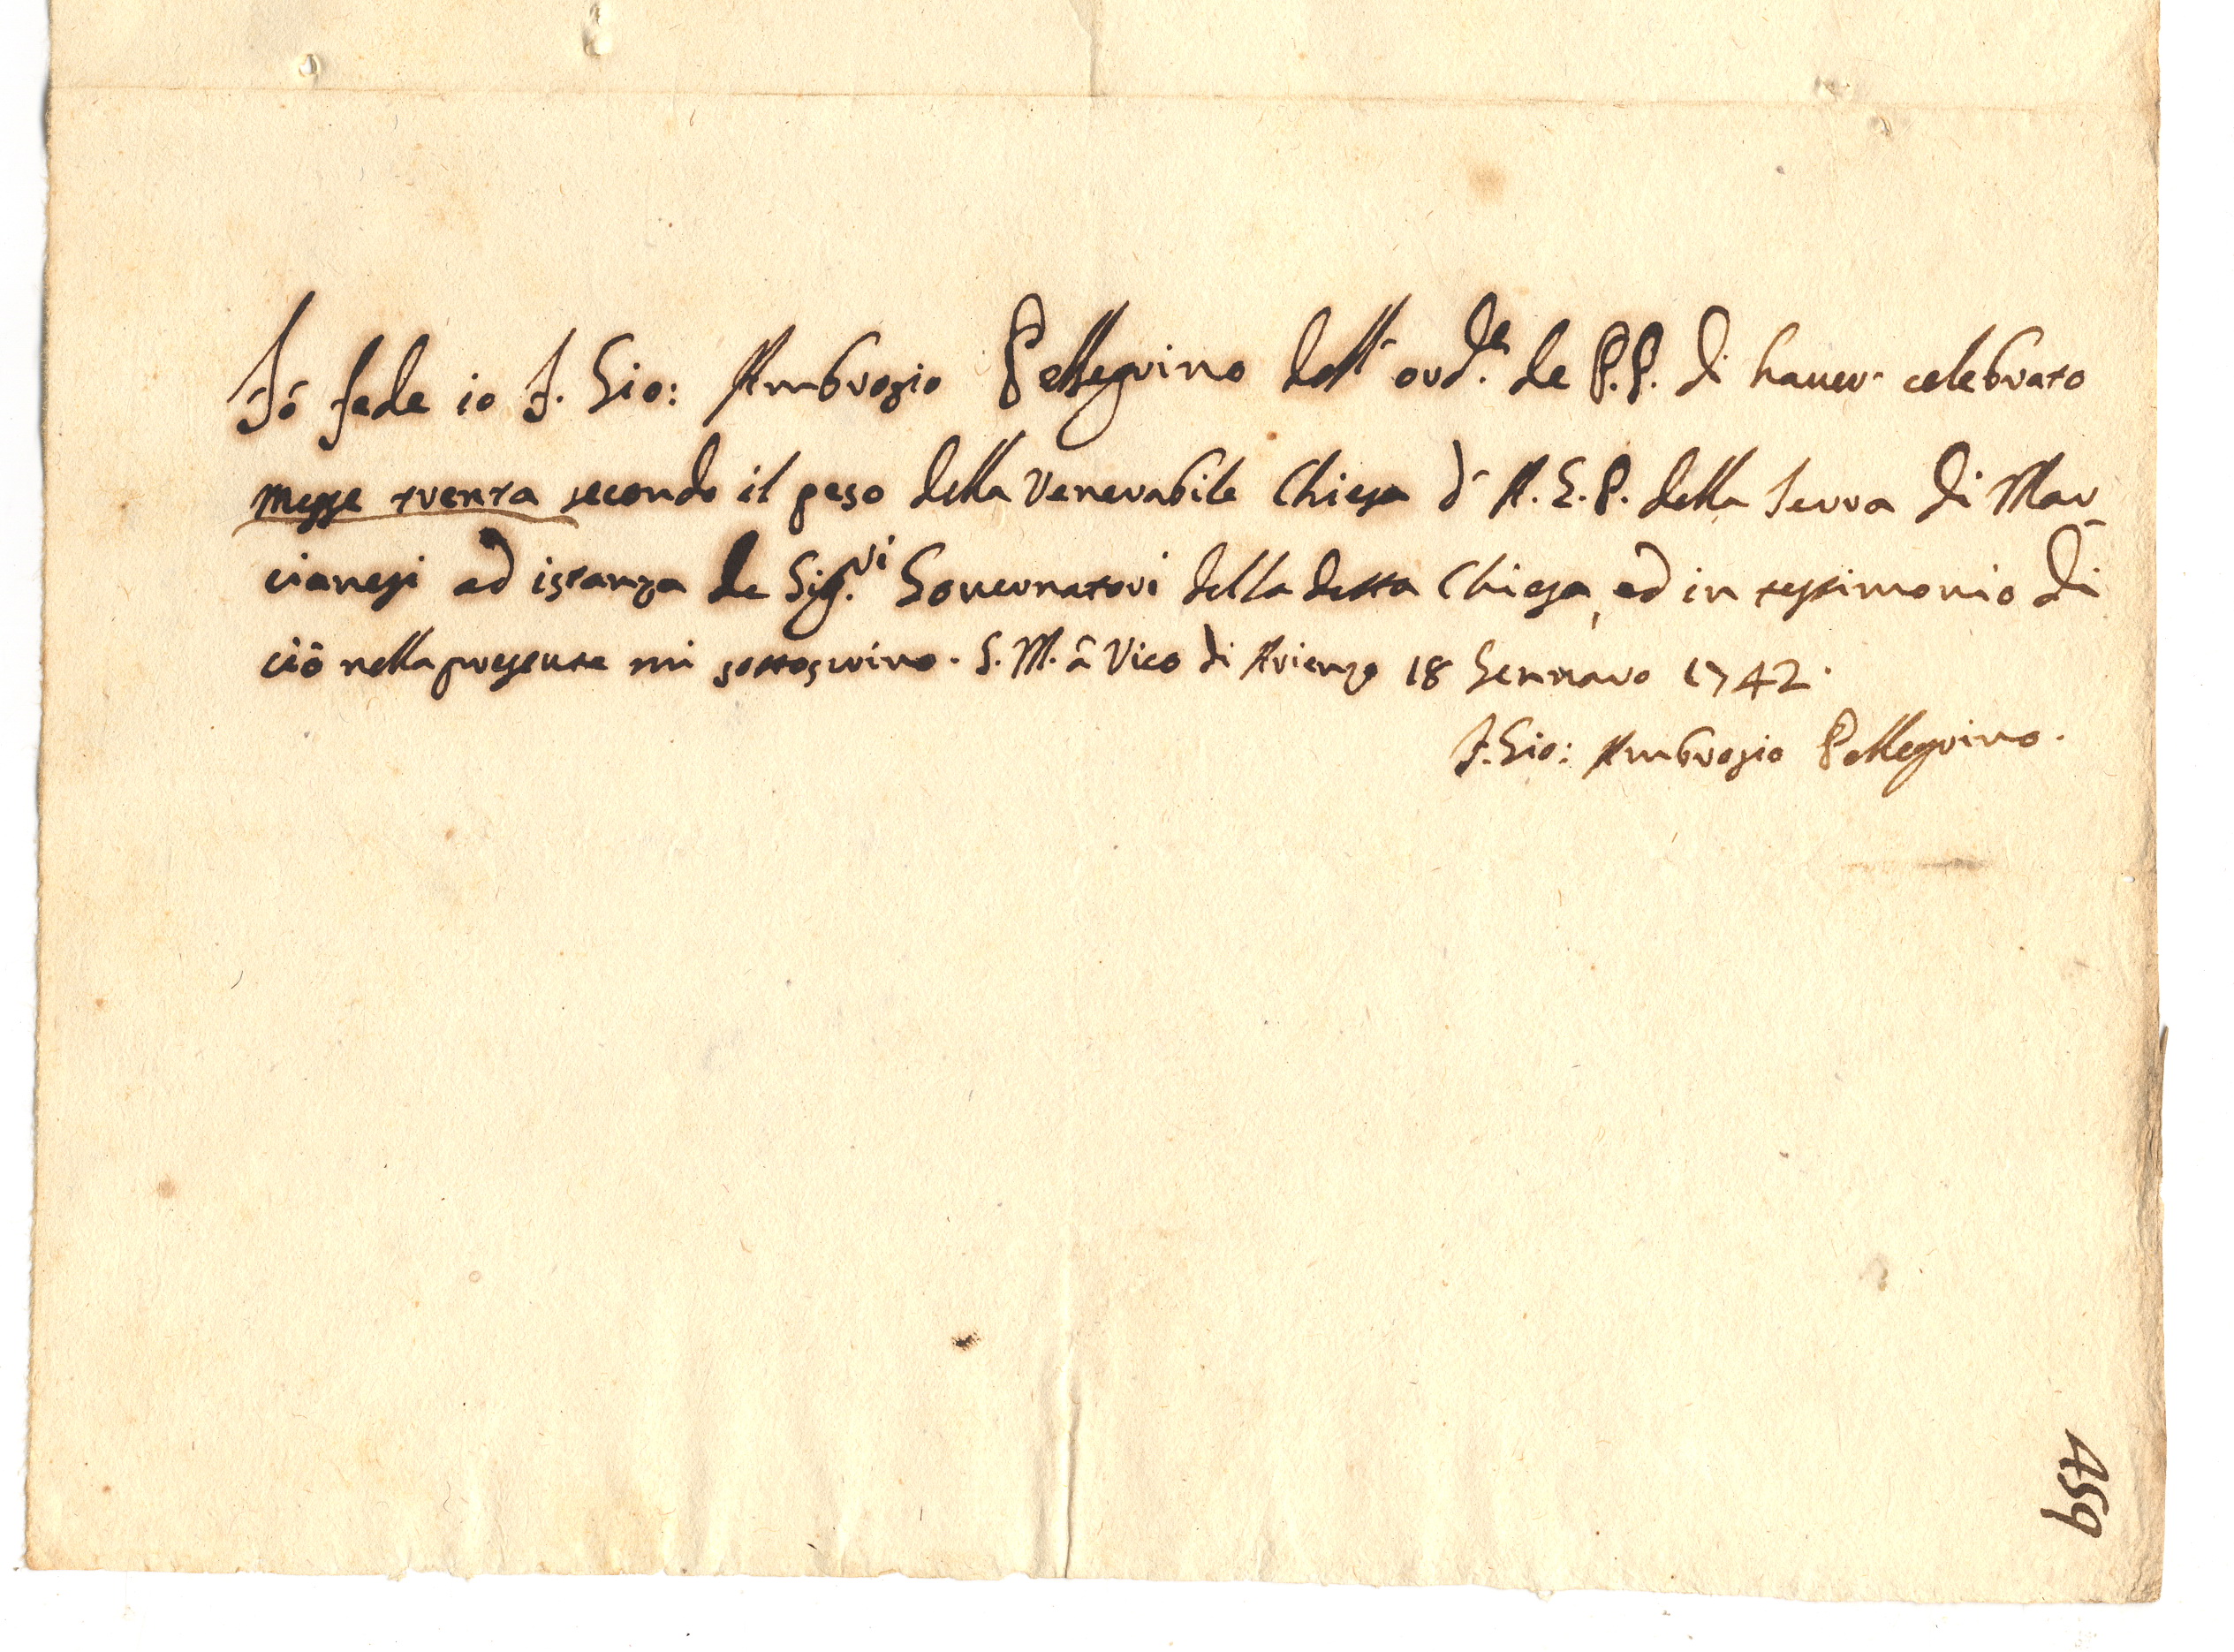 Fò fede io F. Gio: Ambrosio Pellegrino dell' ord.e de P.P. di hauer celebrato
messe trenta secondo il peso della Venerabile Chiesa d' A. G. P. della Terra di Mar
cianesi ad istanza de Sig.ri Gouernatori della detta Chiesa, ed in testimonio di
ciò nella presente mi sottoscrivo. S. M. à Vico di Arienzo 18 Gennaro 1742.
F. Gio: Ambrosio Pellegrino.
459